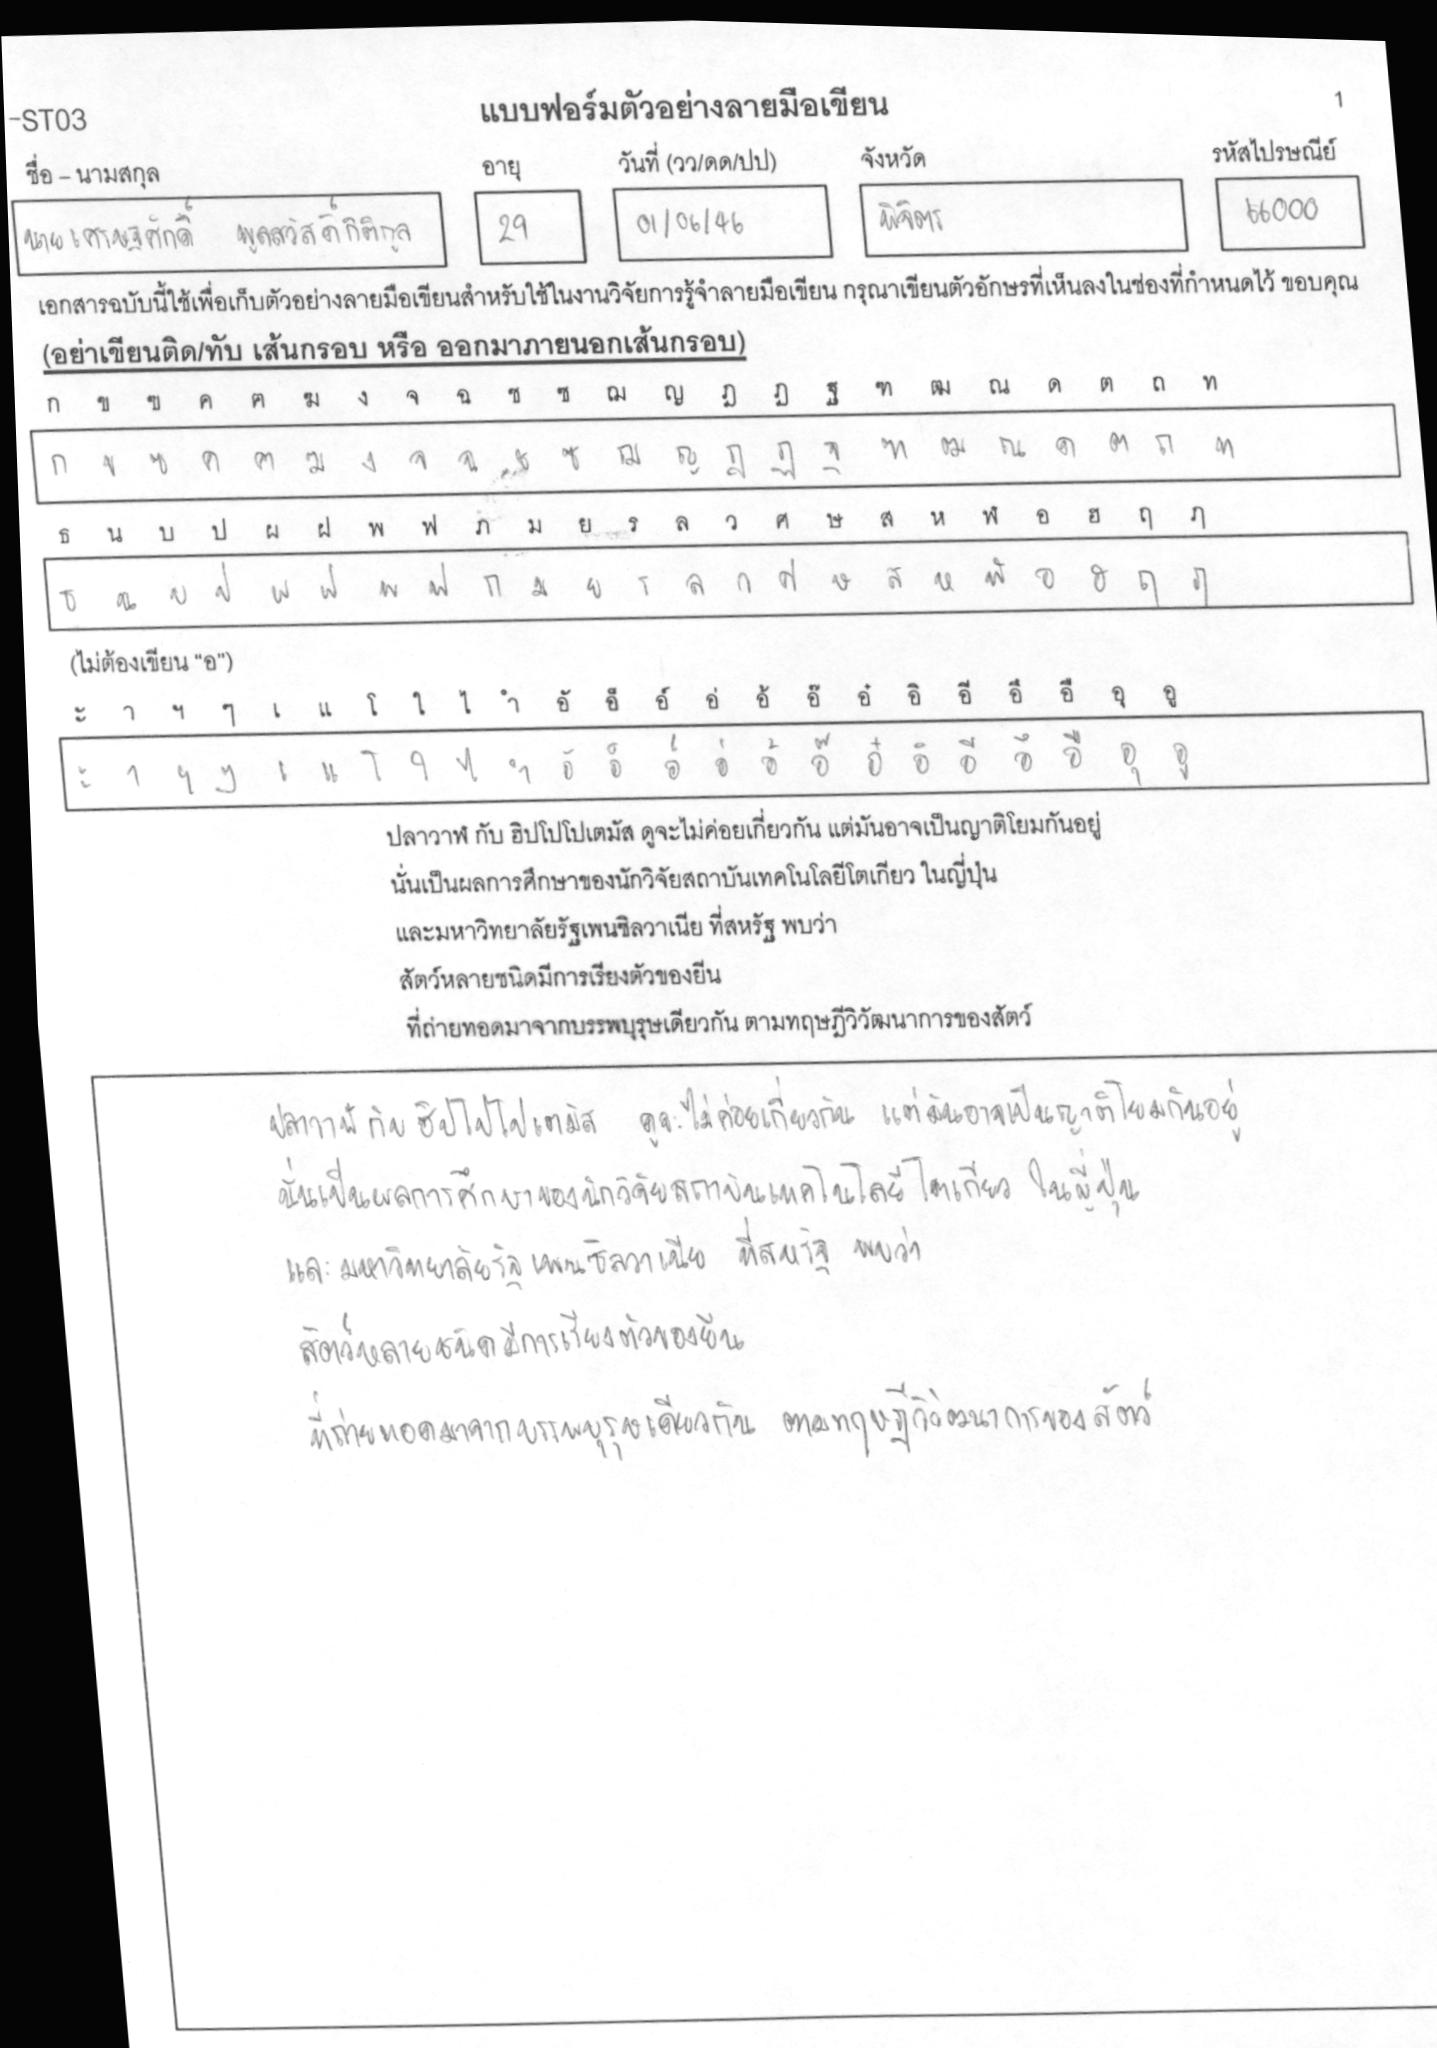 -ST03
แบบฟอร์มตัวอย่างลายมือเขียน
1
ชื่อ – นามสกุล อายุ วันที่ (วว/ดด/ปป) จังหวัด รหัสไปรษณีย์
นายเศรษฐศักดิ์ พูลสวัสดิ์กิติกูล 29 01/06/46 พิจิตร 66000
เอกสารฉบับนี้ใช้เพื่อเก็บตัวอย่างลายมือเขียนสำหรับใช้ในงานวิจัยการรู้จำลายมือเขียน กรุณาเขียนตัวอักษรที่เห็นลงในช่องที่กำหนดไว้ ขอบคุณ
(อย่าเขียนติด/ทับ เส้นกรอบ หรือ ออกมาภายนอกเส้นกรอบ)
ก ข ฃ ค ฅ ฆ ง จ ฉ ช ซ ฌ ญ ฎ ฏ ฐ ฑ ฒ ณ ด ต ถ ท
ก ข ฃ ค ฅ ฆ ง จ ฉ ช ซ ฌ ญ ฎ ฏ ฐ ฑ ฒ ณ ด ต ถ ท
ธ น บ ป ผ ฝ พ ฟ ภ ม ย ร ล ว ศ ษ ส ห ฬ อ ฮ ฤ ฦ
ธ น บ ป ผ ฝ พ ฟ ภ ม ย ร ล ว ศ ษ ส ห ฬ อ ฮ ฤ ฦ
(ไม่ต้องเขียน “อ”)
ะ า ฯ ๆ เ แ โ ใ ไ ำ อั อ็ อ์ อ่ อ้ อ๊ อ๋ อิ อี อึ อื อุ อู
ะ า ฯ ๆ เ แ โ ใ ไ ำ อั อ็ อ์ อ่ อ้ อ๊ อ๋ อิ อี อึ อื อุ อู
ปลาวาฬ กับ ฮิปโปโปเตมัส ดูจะไม่ค่อยเกี่ยวกัน แต่มันอาจเป็นญาติโยมกันอยู่
นั่นเป็นผลการศึกษาของนักวิจัยสถาบันเทคโนโลยีโตเกียว ในญี่ปุ่น
และมหาวิทยาลัยรัฐเพนซิลวาเนีย ที่สหรัฐ พบว่า
สัตว์หลายชนิดมีการเรียงตัวของยีน
ที่ถ่ายทอดมาจากบรรพบุรุษเดียวกัน ตามทฤษฎีวิวัฒนาการของสัตว์
ปลาวาฬ กับ ฮิปโปโปเตมัส ดูจะไม่ค่อยเกี่ยวกัน แต่มันอาจเป็นญาติโยมกันอยู่
นั่นเป็นผลการศึกษาของนักวิจัยสถาบันเทคโนโลยีโตเกียว ในญี่ปุ่น
และมหาวิทยาลัยรัฐเพนซิลวาเนีย ที่สหรัฐ พบว่า
สัตว์หลายชนิดมีการเรียงตัวของยีน
ที่ถ่ายทอดมาจากบรรพบุรุษเดียวกัน ตามทฤษฎีวิวัฒนาการของสัตว์